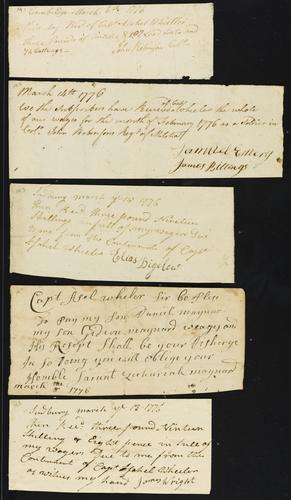 Cambridge March 1776
this day Recd of Capt Asahel Wheeler
three Pounds
Shillings John Robinson Collo
March 14th 1776
We the Subscribers have Received of Capt Wheeler the whole
of our wages for the month of February 1776 as a Soldier in
Collo John Robinsons Regt of
Samuel Emery
James Billings
march ye 1776
then Recd three pound Nineteen
Shillings of all of my wages Due
to me from the Continental of Capt
Asahel Wheeler Elias Bigelow
Capt Asel wheler Sir be Plese
To pay my Son Daniel maynar
my Son maynard weages and
this Resept Shall be your Discherge
in So Doing you will oblige your
Humble Sarvnt Zachariah maynard
march the 1776
Sudbury march ye 13 1776
then Recd three pound Ninteen
Shilling & Eight pence in full of
my wages Due to me from the
Continent of Capt Asahel Wheeler
as witnes my hand James Wright